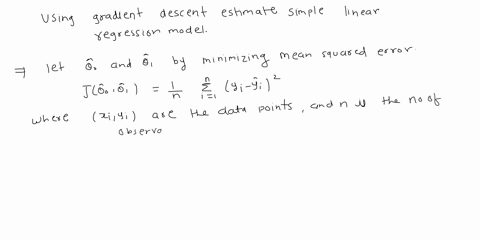 Using gradient descent estimate simple linear
regression model.
⇒ let θ̂₀ and θ̂₁ by minimizing mean squared error
J(θ̂₀,θ̂₁) = 1/n Σᵢ₌₁ⁿ (yᵢ-ŷᵢ)²
where (xᵢ,yᵢ) are the data points, and n is the no of
observa